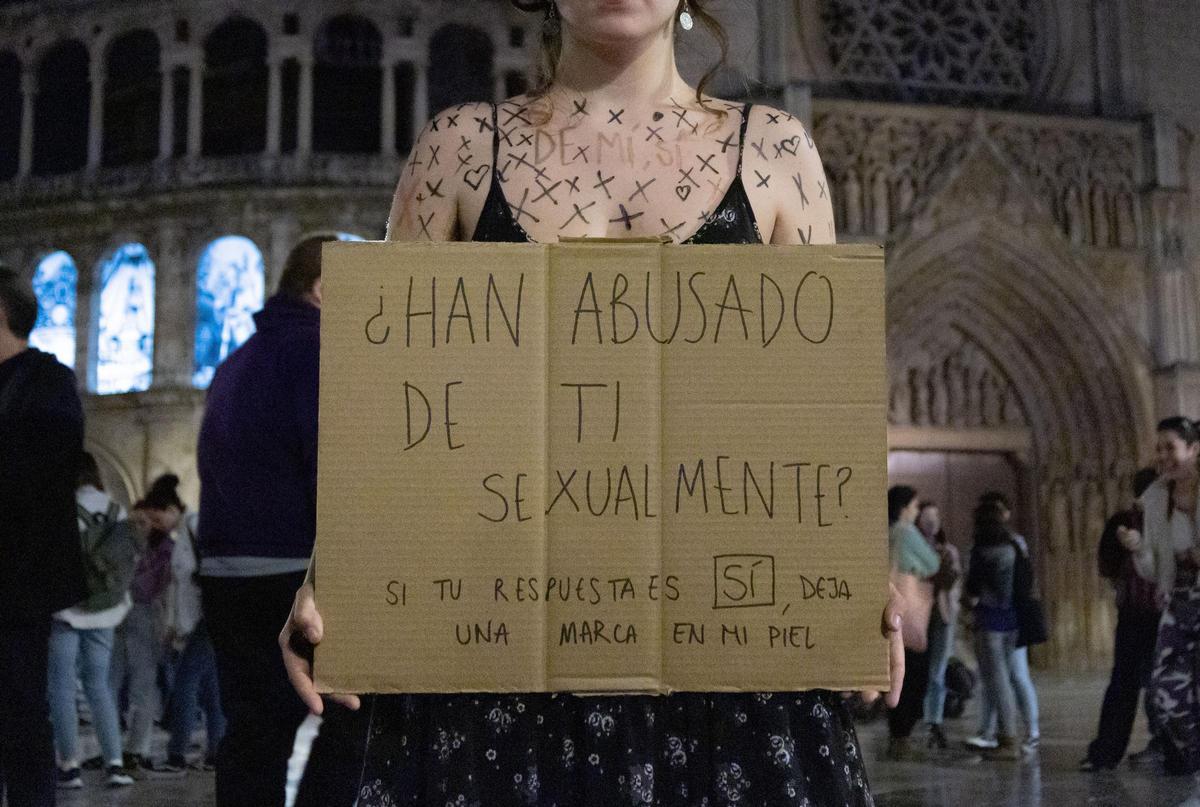 DE MÍ, SÍ
¿HAN ABUSADO
DE TI
SEXUALMENTE?
SI TU RESPUESTA ES SÍ, DEJA
UNA MARCA EN MI PIEL